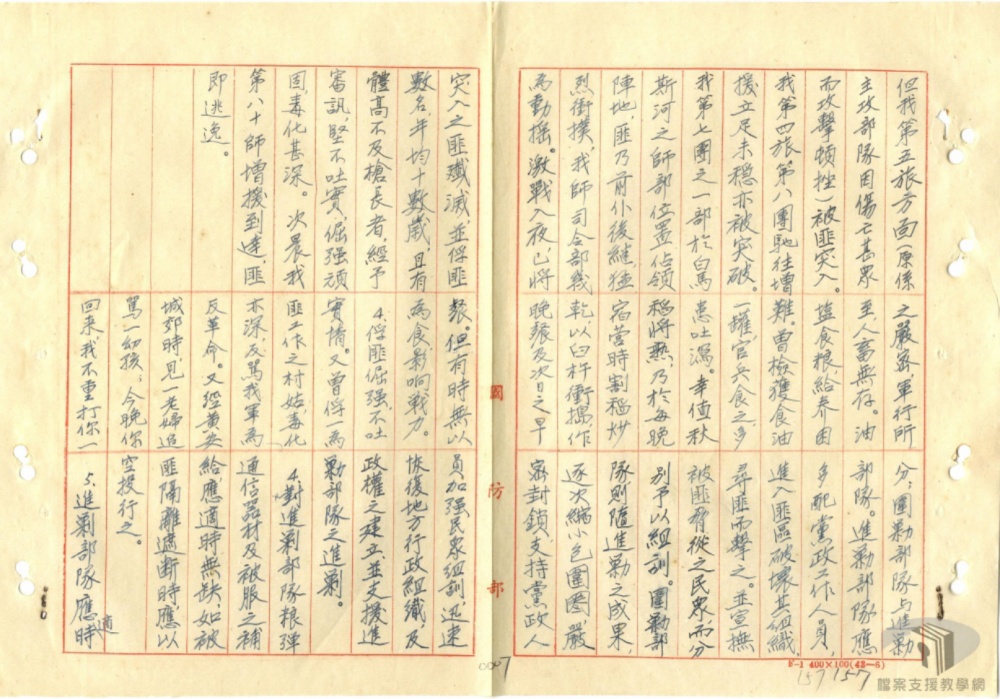 但我第五旅方面(原係
主攻部隊因傷亡甚眾
而攻擊頓挫)被匪突入。
我第四旅第八團馳往增
援立足未穩亦被突破。
我第七團之一部於白馬
斯河之師部位置佔領
陣地,匪乃前仆後繼,猛
烈衝撲,我師司令部幾
為動搖。激戰入夜,已將
突入之匪殲滅並俘匪
數名,年均十數歲,且有
體高不及槍長者,經予
審訊,堅不吐實,倔強頑
固,毒化甚深。次晨我
第八十師增援到達,匪
即逃逸。
之嚴密,軍行所
至,人畜無存。油
鹽食糧,給養困
難。曾檢獲食油
一罐,官兵食之,多
患吐瀉。幸值秋
稻將熟,乃於每晚
宿營時割稻炒
乾,以臼杵衝搗,作
晚餐及次日之早
餐。但有時無以
為食,影响戰力。
4.俘匪倔强,不吐
實情。又曾俘一為
匪工作之村姑,毒化
亦深,反罵我軍為
反革命。又經黃安
城郊時,見一老婦追
罵一幼孩:今晚你
回來,我不重打你一
分:圍勦部隊與進勦
部隊。進勦部隊應
多配黨政工作人員,
進入匪區破壞其組織,
尋匪而擊之。並宣撫
被匪脅從之民眾而分
別予以組訓。圍勦部
隊則隨進勦之成果,
逐次縮小包圍圈,嚴
密封鎖,支持黨政人
員加强民眾組訓,迅速
恢復地方行政組織及
政權之建立,並支援進
勦部隊之進剿。
4.對進剿部隊糧彈
通信器材及被服之補
給應適時無缺,如被
匪隔離遮斷時,應以
空投行之。
5.進剿部隊應適時
國防部
0007
F-1 400×100(43-6)
157 157
檔案支援教學網